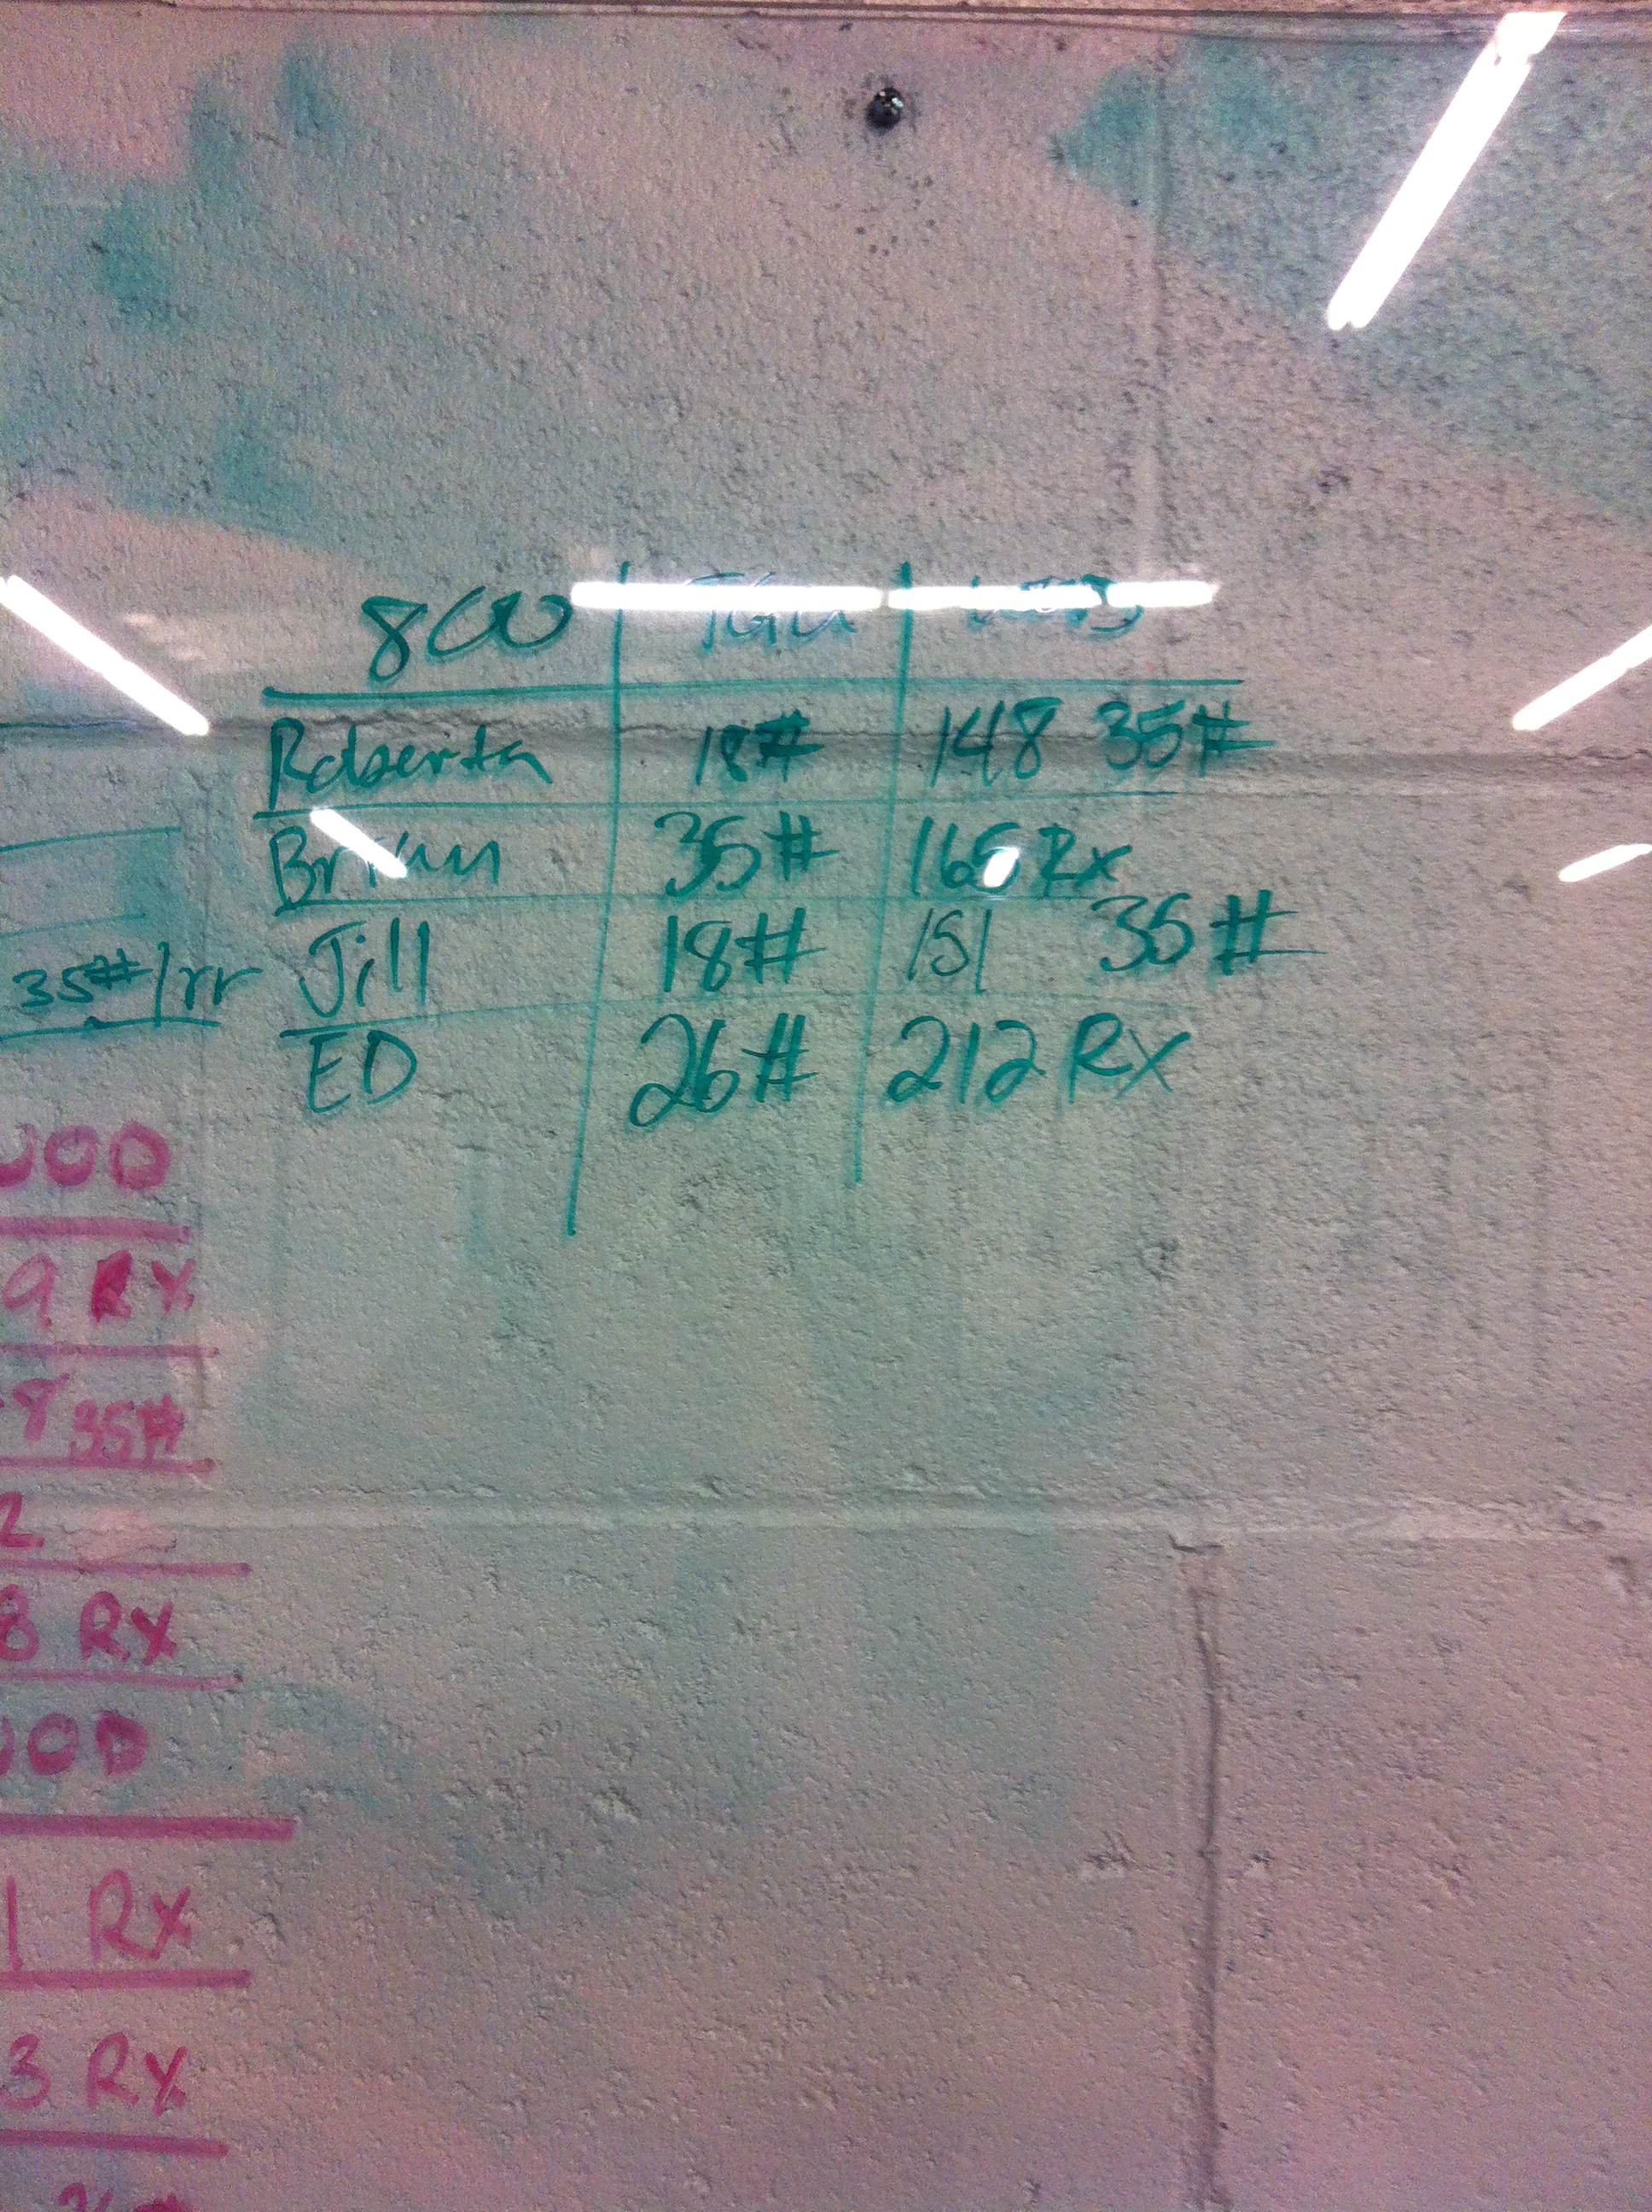 800 TGU WOD
Roberta 18# 148 35#
Brian 35# 165 Rx
Jill 18# 151 35#
ED 26# 212 Rx
35#/rr
WOD
9 Rx
8 35#
2
8 Rx
WOD
1 Rx
3 Rx